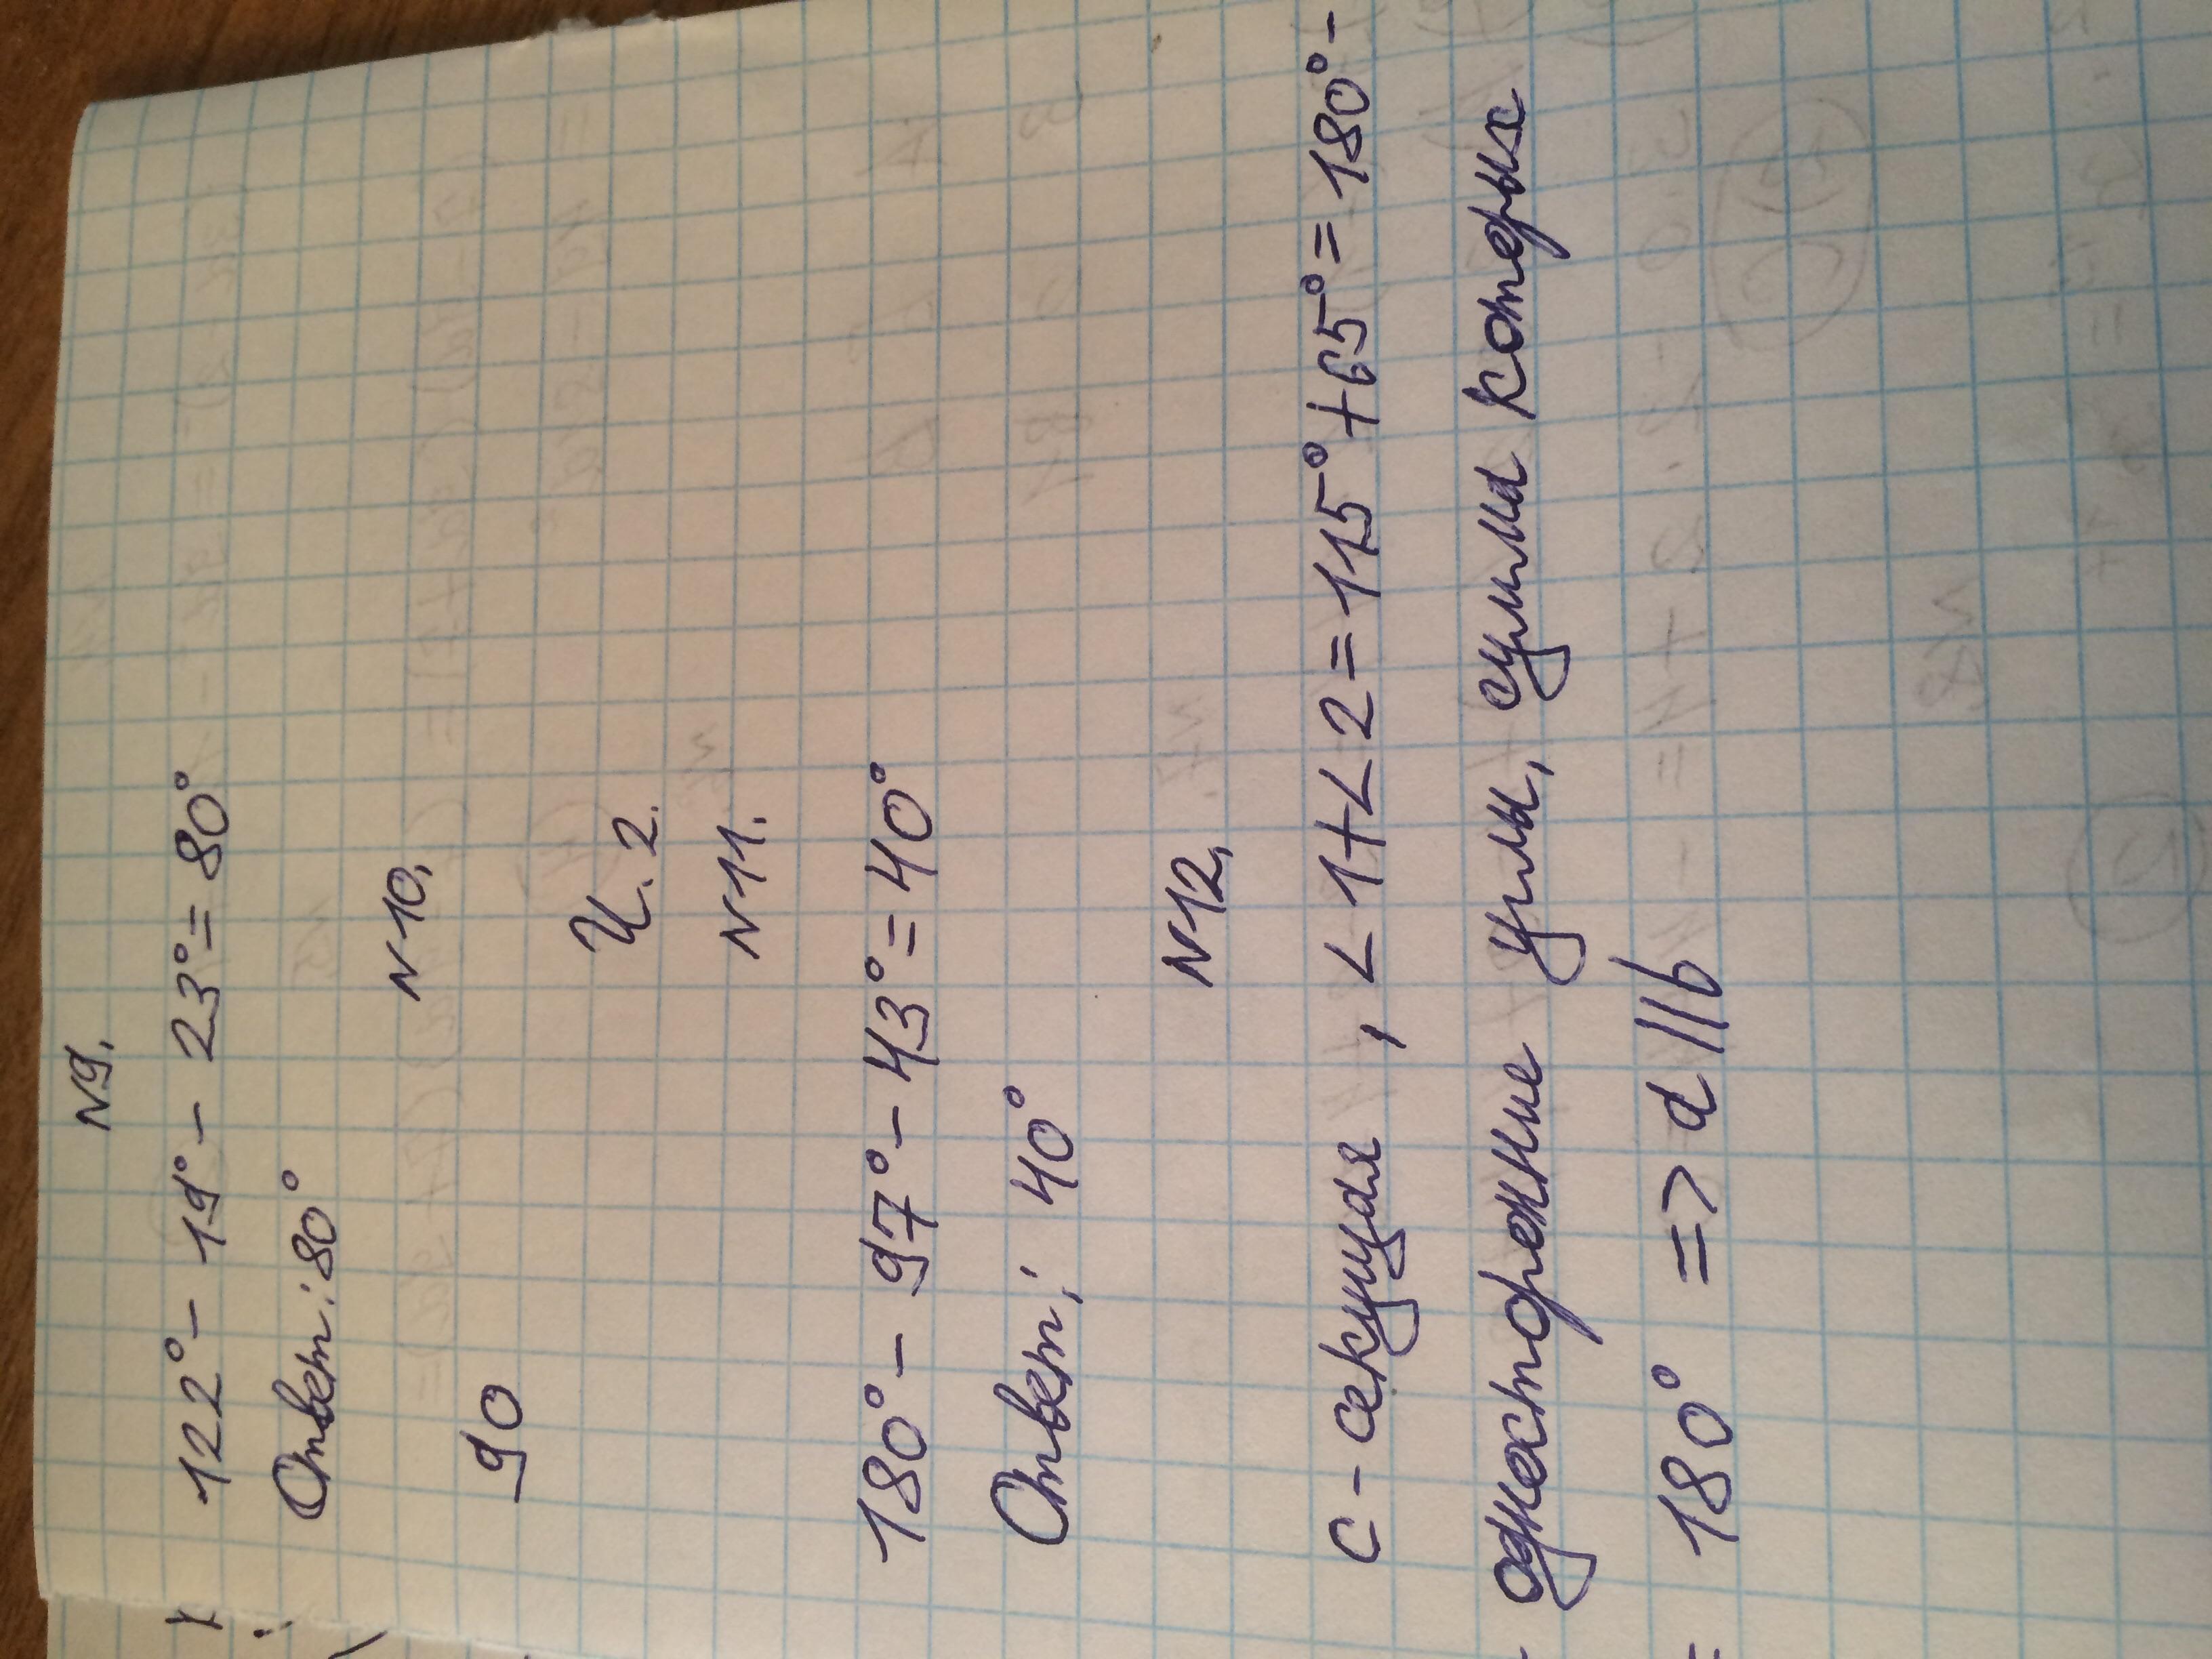 N9.
122° - 19° - 23° = 80°
Ответ: 80°
N10.
90
Ч. 2.
N11.
180° - 97° - 43° = 40°
Ответ: 40°
N12.
c - секущая, ∠1+∠2=115°+65°=180° -
односторонние углы, сумма которых
= 180° => a || b